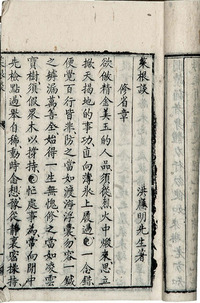 菜根談
洪應明先生著
修省章
欲做精金美玉的人品須從烈火中煅來思立
掀天揭地的事功直向薄氷上履過一念錯
便覺百行皆非防之當如渡海浮囊勿容一鍼
之罅漏萬善全始得一生無愧修之當如凌雲
寶樹須假眾木以撐持忙處事為常向閒中
先檢點過舉自稀動時念想預從靜裏密操持